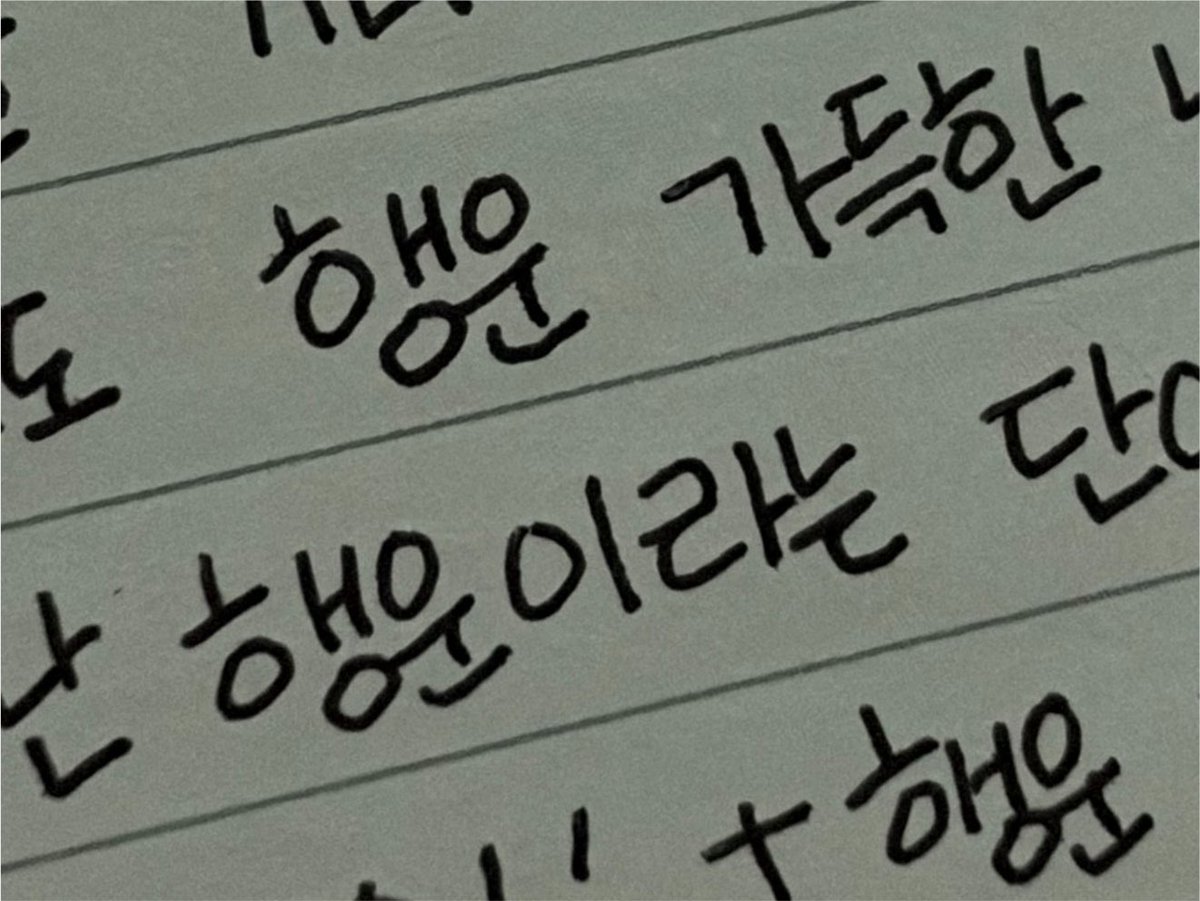 도 행운 가득한
행운이라는 단
+행운